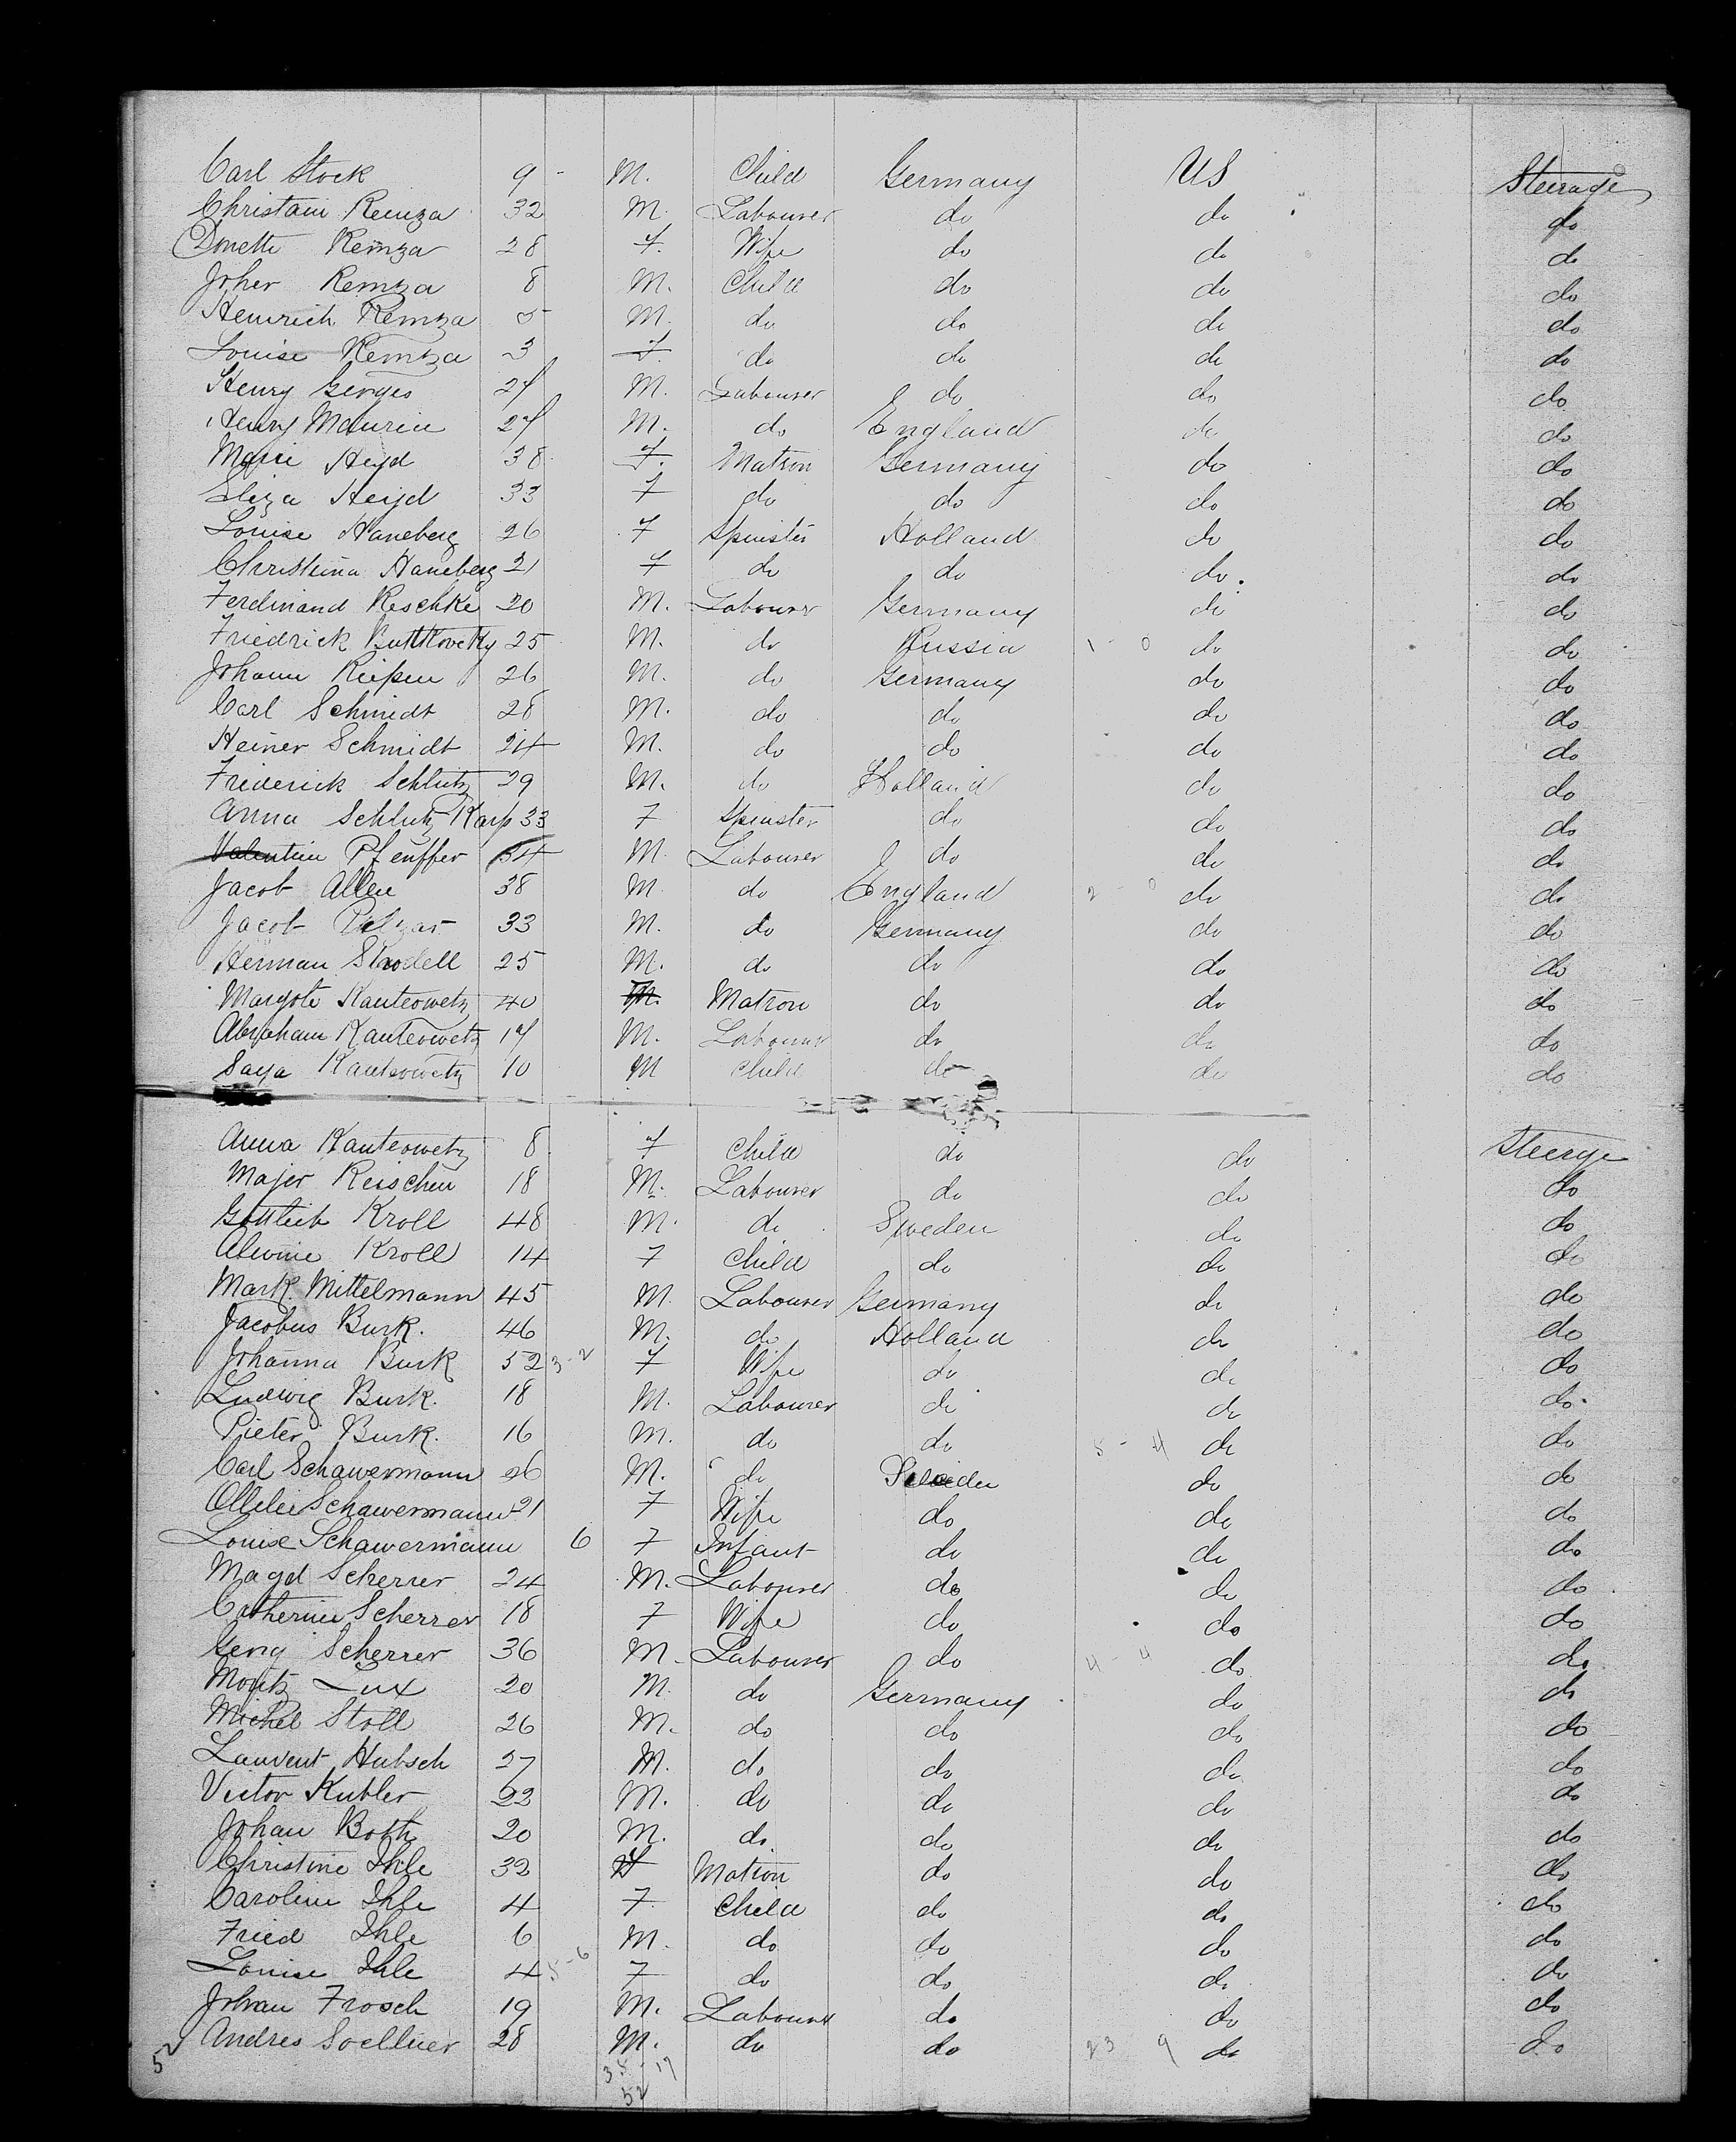 Carl Stock 9 - M. Child Germany US Steerage
Christain Remza 32 M. Labourer do do do
Donette Remza 28 F. Wife do do do
Joher Remza 8 M. Child do do do
Heinrich Remza 5 M. do do do do
Louise Remza 3 F do do do do
Henry Gerges 27 M. Labourer do do do
Henry Maurin 27 M. do England do do
Marie Heyd 38 F. Matron Germany do do
Eliza Heyd 33 F do do do do
Louise Haneberg 26 F Spinster Holland do do
Christina Haneberg 21 F do do do. do
Ferdinand Reschke 20 M. Labourer Germany do do
Friedrick Buttkovcky 25 M. do Russia 1 - 0 do do
Johann Riepen 26 M. do Germany do do
Carl Schmidt 28 M. do do do do
Heiner Schmidt 24 M. do do do do
Friderick Schlutz 29 M. do Holland do do
Anna Schlutz Karp 33 F Spinster do do do
Valentin Pfeuffer 34 M. Labourer do do do
Jacob Allen 38 M. do England 2 - 0 do do
Jacob Pelzar 33 M. do Germany do do
Herman Stadell 25 M. do do do do
Margote Kanterowetz 40 Matron do do do
Abraham Kanterowetz 17 M. Labourer do do do
Saya Kanterowetz 10 M Child do do do
Anna Kanterowetz 8 F Child do do Steerge
Majer Reischen 18 M. Labourer do do do
Gottlieb Kroll 48 M. do Sweden do do
Alwine Kroll 14 F Child do do do
Mark Mittelmann 45 M. Labourer Germany do do
Jacobus Burk. 46 M. do Holland do do
Johanna Burk 52 3-2 F Wife do do do
Ludwig Burk. 18 M. Labourer do do do.
Pieter Burk. 16 M. do do 5 - 4 do do
Carl Schawermann 26 M. do do do
Ottilie Schawermann 21 F Wife do do do
Louise Schawermann 6 F Infant do do do
Magd Scherrer 24 M. Labourer do do do
Catherine Scherrer 18 F Wife do do do
Georg Scherrer 36 M. Labourer do 4 - 4 do do
Moritz Lux 20 M. do Germany do do
Michel Stoll 26 M. do do do do
Laurent Hubsch 27 M. do do do do
Victor Kubler 22 M. do do do do
Johan Both 20 M. do do do do
Christine Ihle 32 F Matron do do do
Caroline Ihle 4 F Child do do do
Fried Ihle 6 M. do do do do
Louise Ihle 4 5-6 F do do do do
Johan Frosch 19 M. Labourer do do do
52 Andres Soellner 28 M. do do 23 9 do do
35 - 17
52